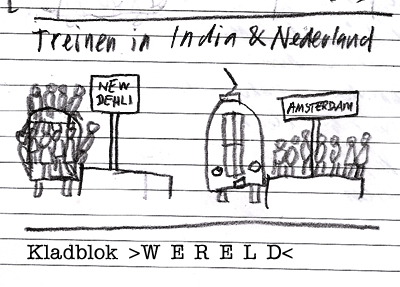 Treinen in India & Nederland
NEW
DEHLI
AMSTERDAM
Kladblok >W E R E L D<